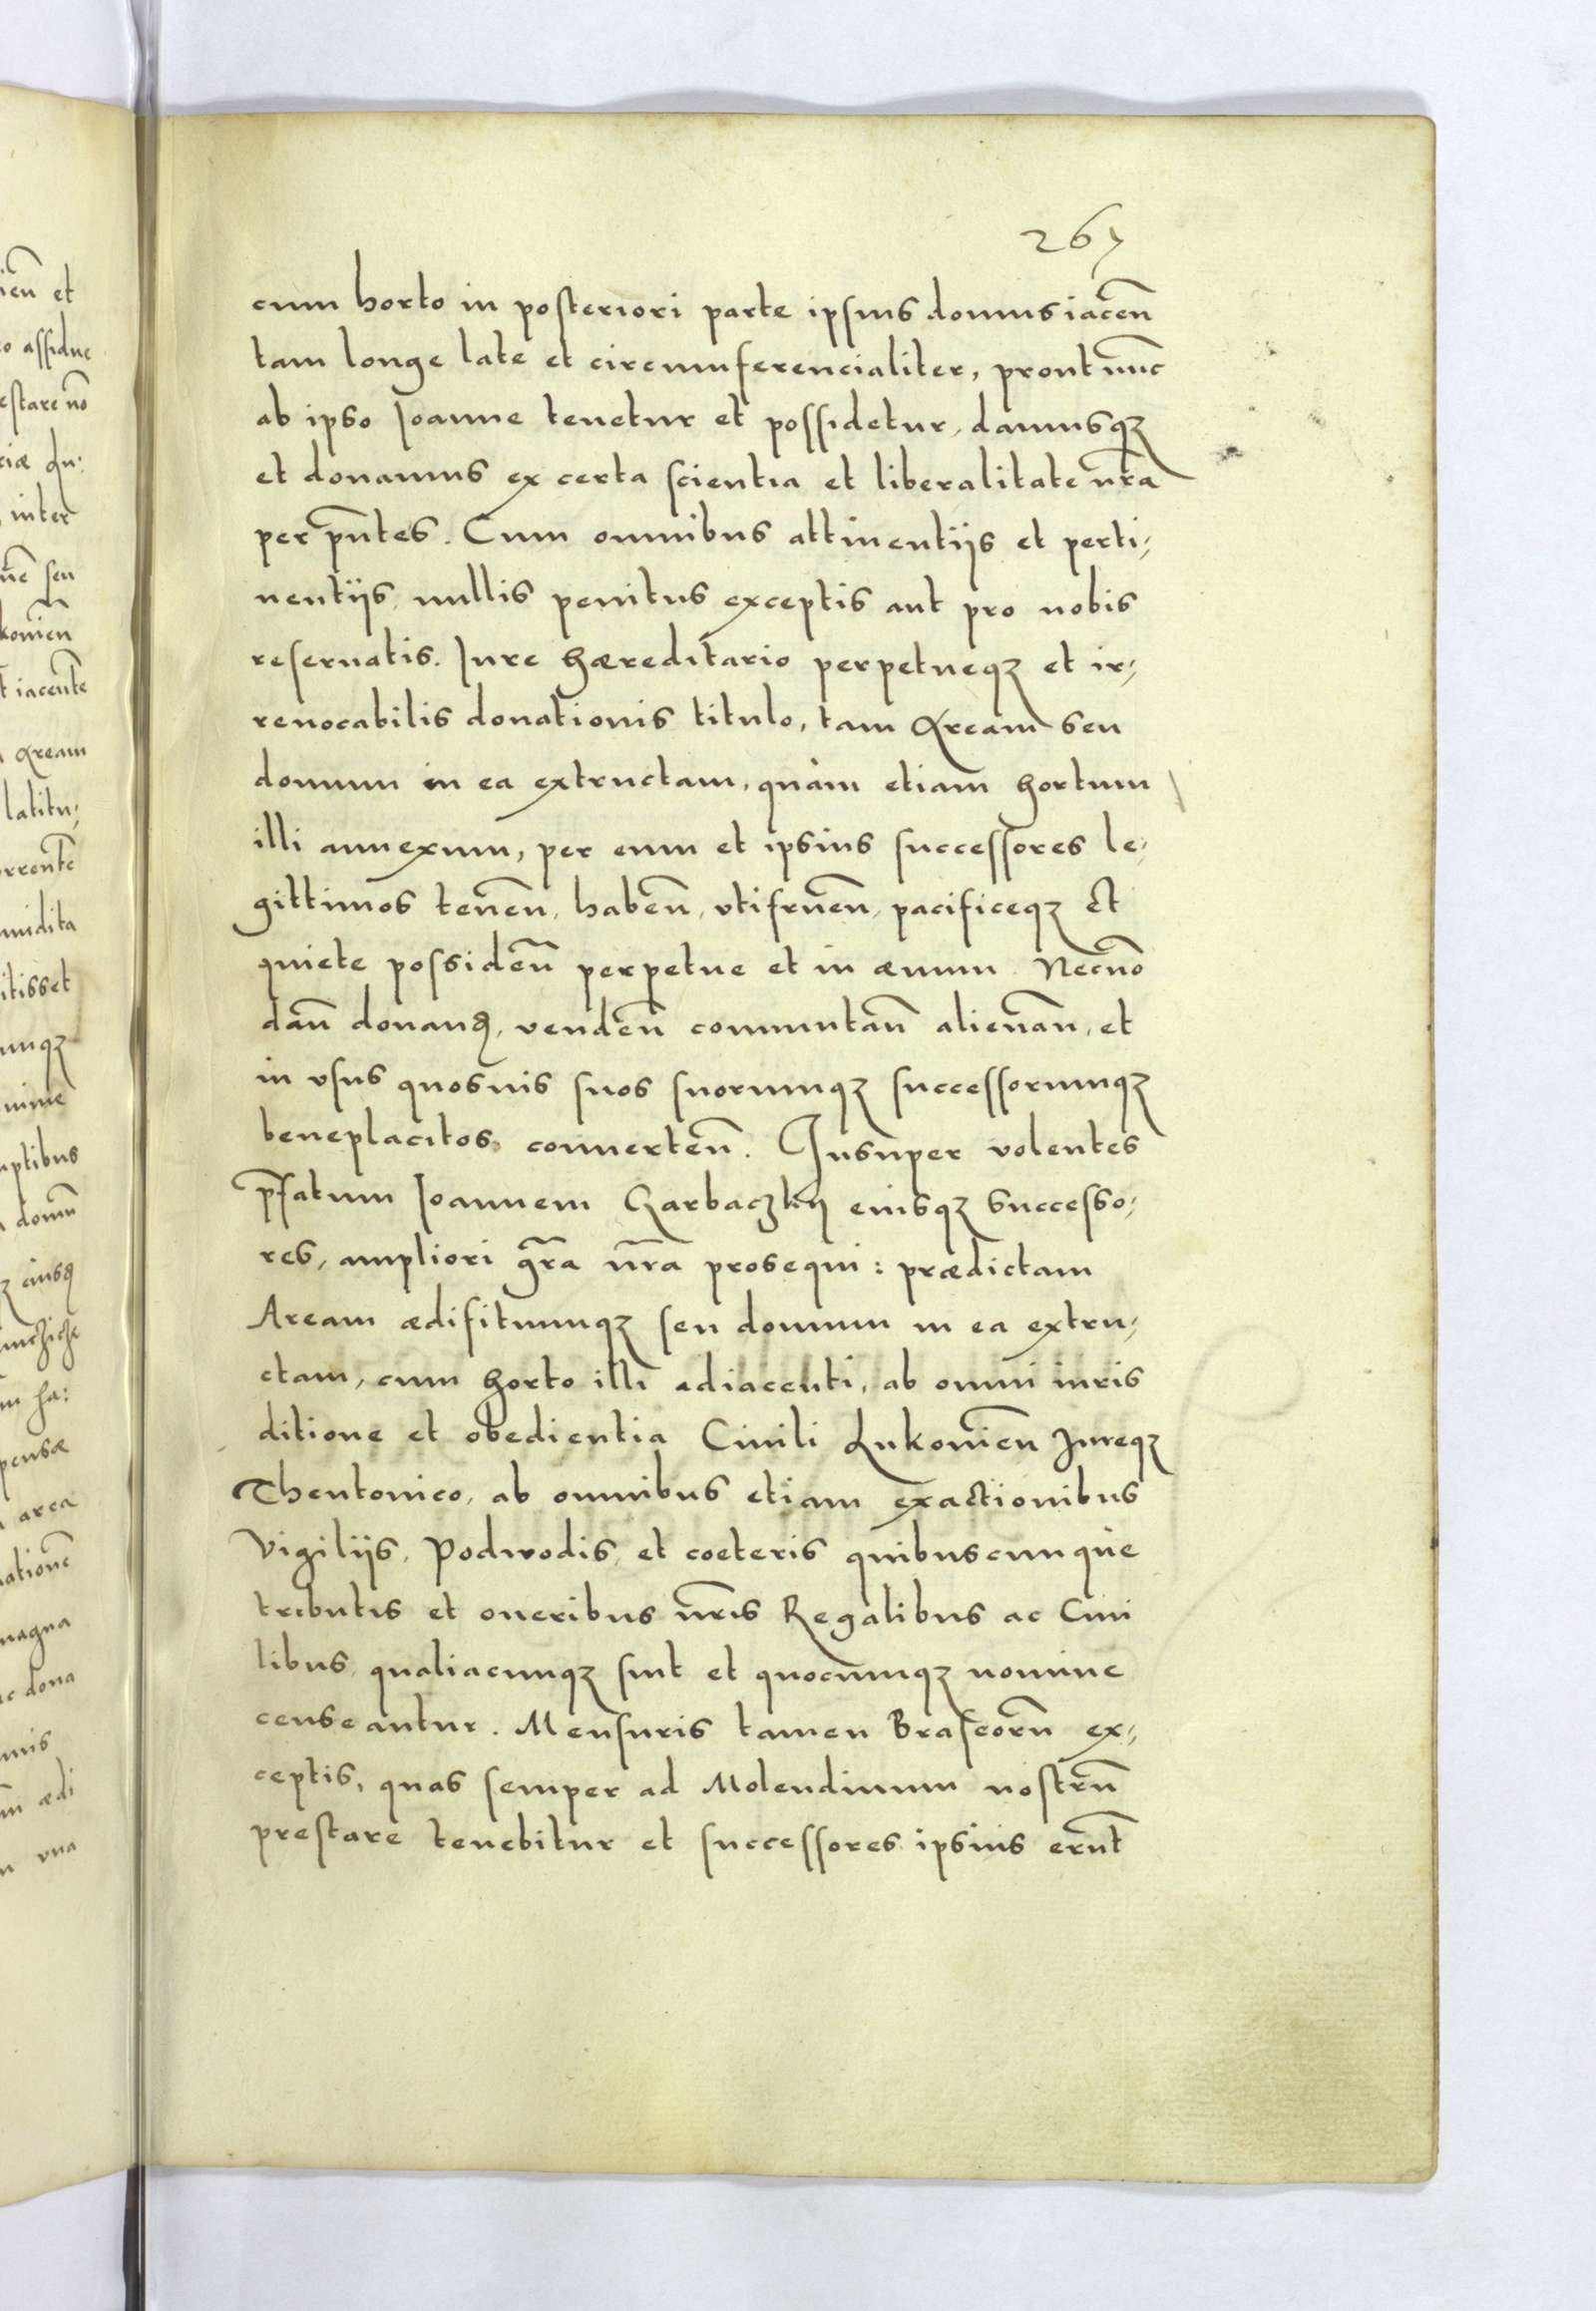 267
cum horto in posteriori parte ipsius domus iaceñ
tam longe late et circumferencialiter, prout nunc
ab ipso Joanne tenetur et possidetur, damusqꝫ
et donamus ex certa scientia et liberalitate nr̃a
per pñtes. Cum omnibus attinentijs et perti,
nentijs, nullis penitus exceptis aut pro nobis
reservatis. Jure hæreditario perpetueqꝫ et ir,
revocabilis donationis titulo, tam Aream seu
domum in ea extructam, quàm etiam hortum
illi annexum, per eum et ipsius successores le,
gittimos teneñ, habeñ, vtifrueñ, pacificeqꝫ et
quiete possideñ perpetue et in ævum. Necnõ
dañ donand, vendeñ commutañ alienañ, et
in vsus quosuis suos suorumqꝫ successorumqꝫ
beneplacitos convertẽn. Insuper volentes
p̃fatum Joannem Garbaczky eiusqꝫ successo,
res, ampliori gr̃a nr̃a prosequi: prædictam
Aream ædifitiumqꝫ seu domum in ea extru,
ctam, cum horto illi adiacenti, ab omni iuris
ditione et obedientia Civili Lukovieñ Jureqꝫ
Theutonico, ab omnibus etiam exactionibus
Vigilijs, Podwodis, et coeteris quibuscunque
tributis et oneribus nr̃is Regalibus ac Civi
libus, qualiacunqꝫ sint et quocunqꝫ nomine
censeantur. Mensuris tamen Braseorũ ex,
ceptis, quas semper ad Molendinum nostrũ
prestare tenebitur et successores ipsius erũt
ieñ et
o assidue
estare nõ
ciæ qu:
inter
seu
kovieñ
t iacentẽ
Aream
latitu,
orrentẽ
itisset
umqꝫ
uptibus
domũ
m ha:
pensæ
area
ationẽ
magna
c dona
mis
ædi
vna